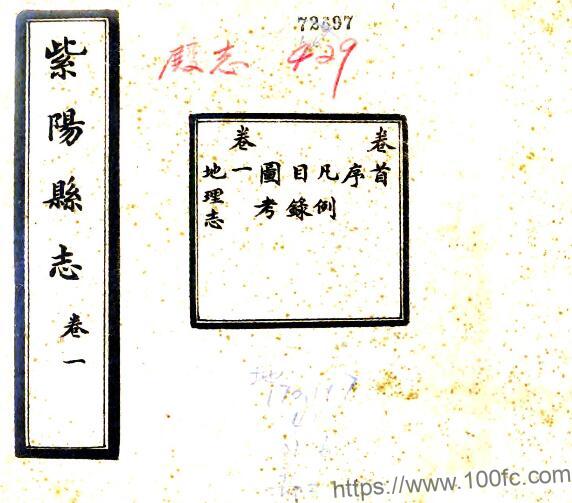 72697
殿志 429
紫陽縣志 卷一
卷首
序
凡例
目錄
圖考
卷一
地理志
https://www.100fc.com